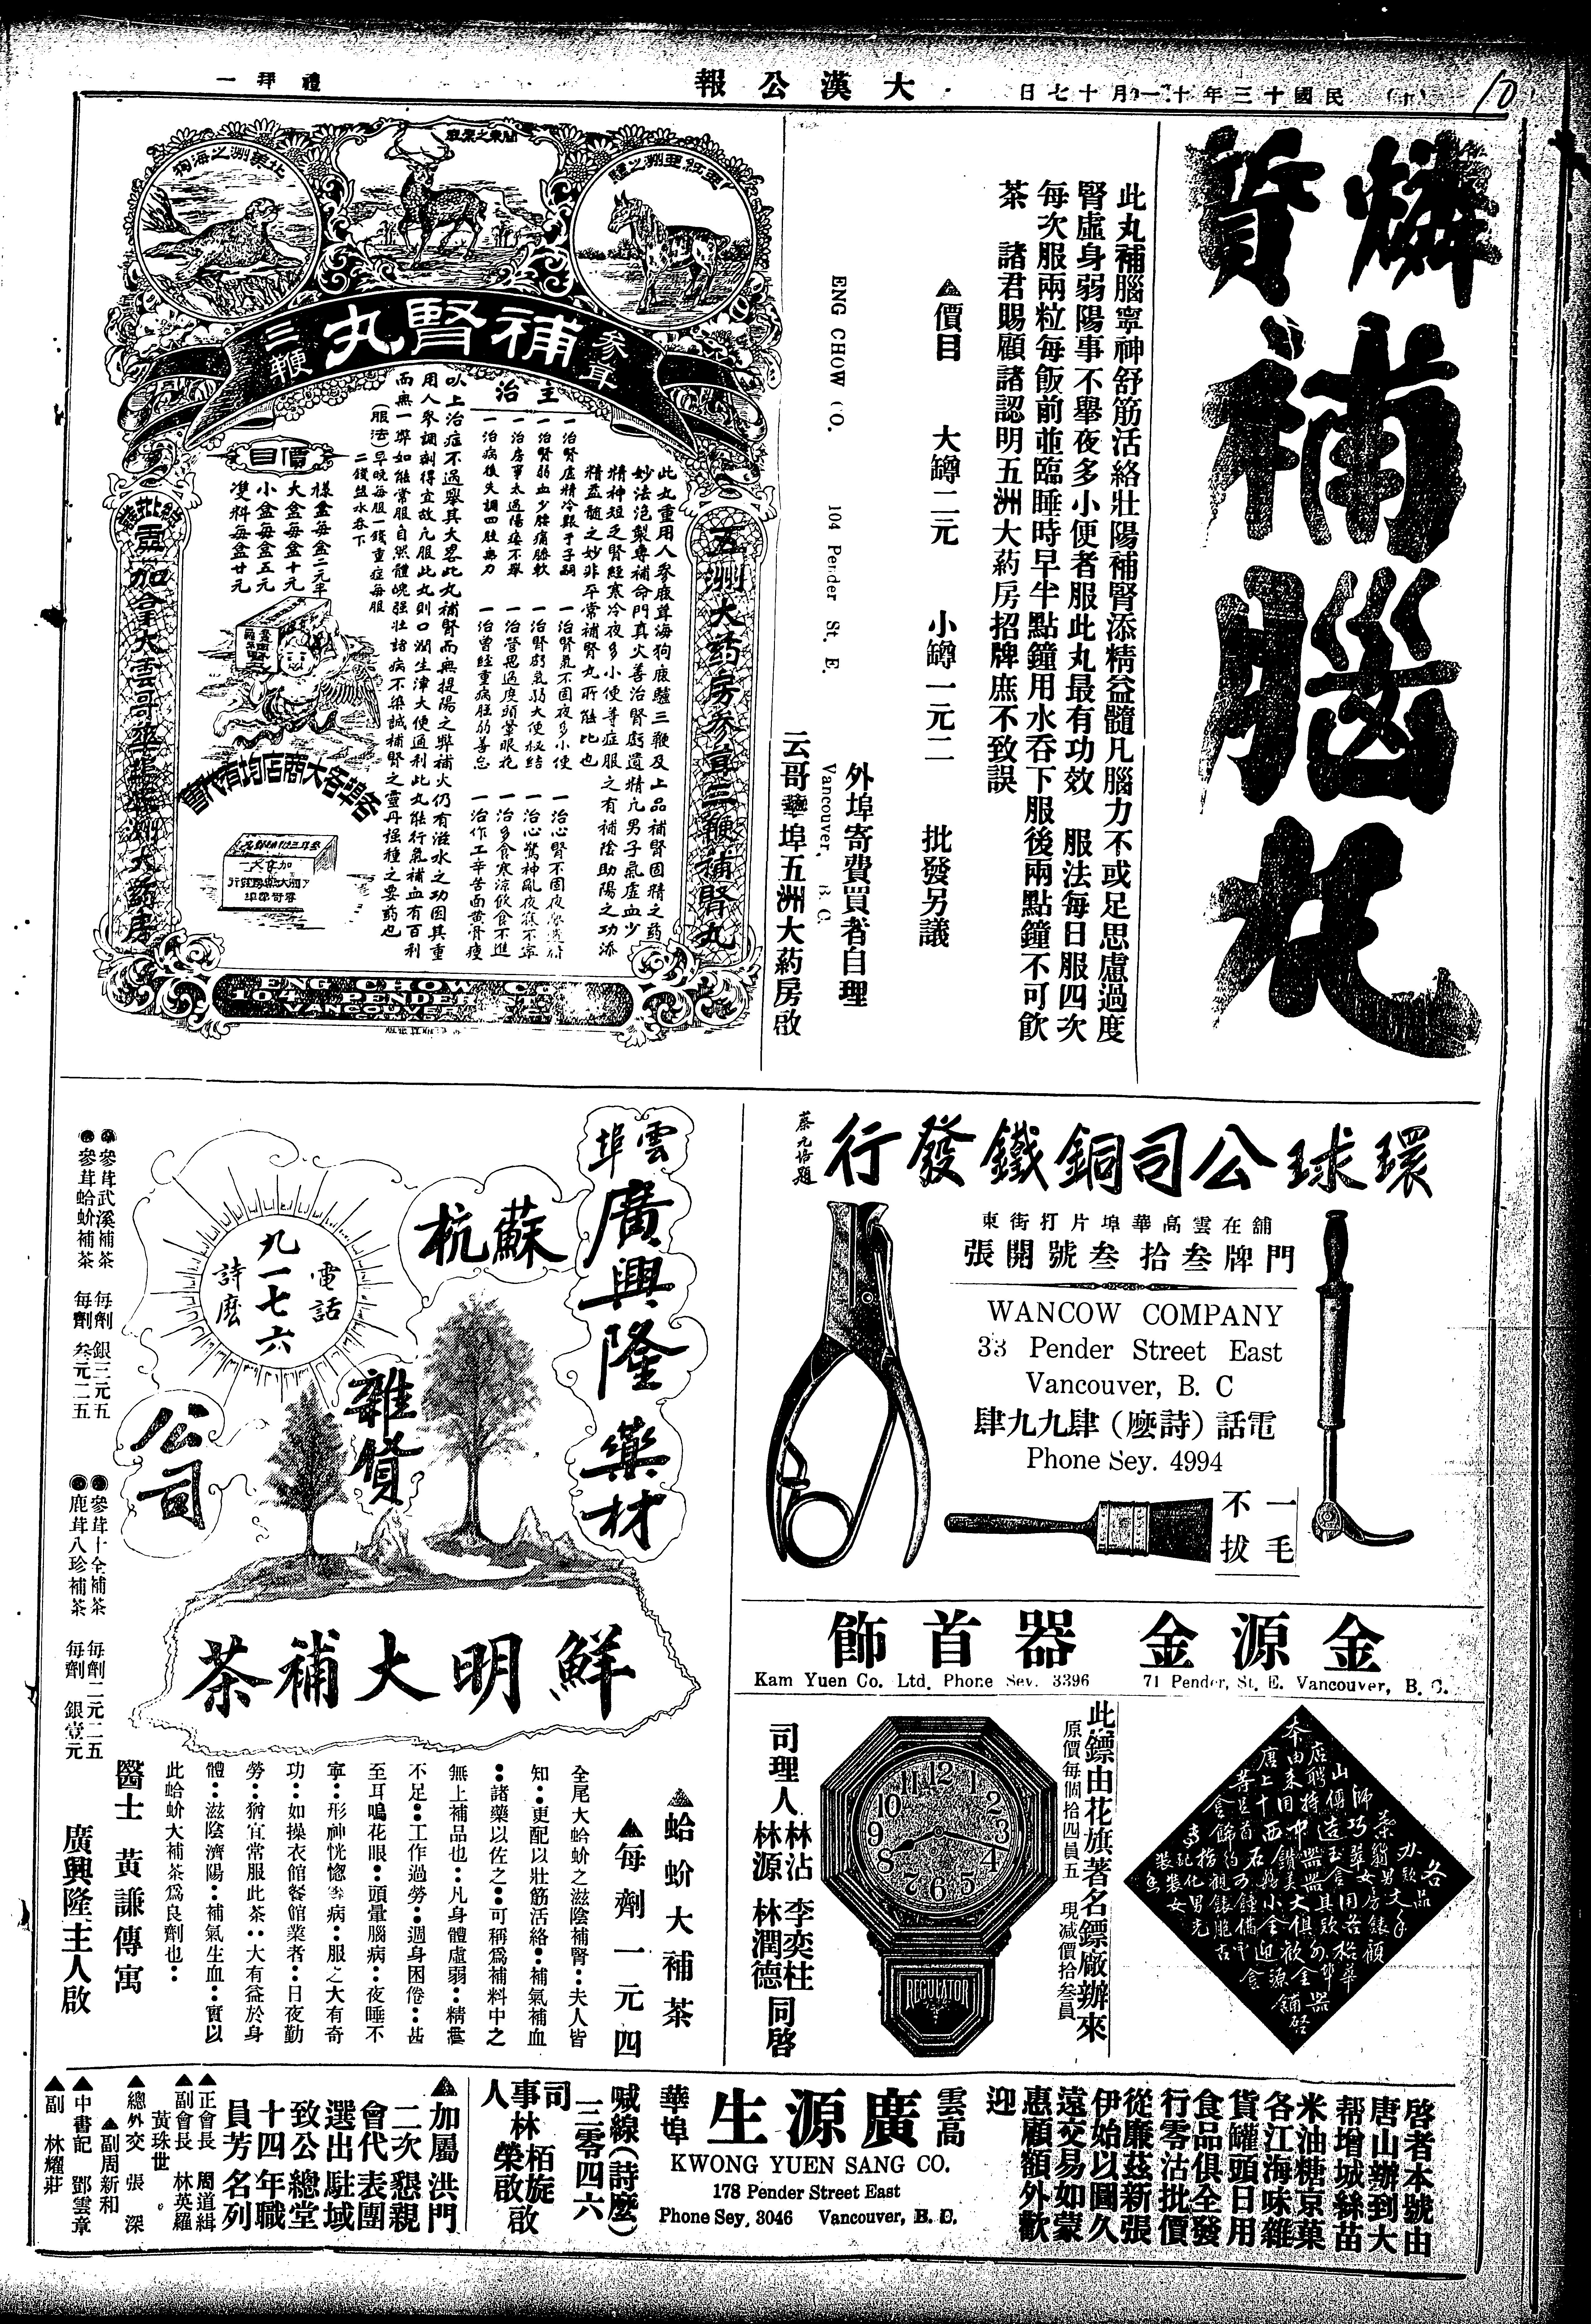 (十)
民國十三年十一月十七日
大漢公報
禮拜一
10
燐質補腦丸
此丸補腦寧神舒筋活絡壯陽補腎添精益髓凡腦力不或足思慮過度
腎虛身弱陽事不舉夜多小便者服此丸最有功效　服法每日服四次
每次服兩粒每飯前並臨睡時早半點鐘用水吞下服後兩點鐘不可飲
茶　諸君賜顧諸認明五洲大药房招牌庶不致誤
▲價目　大罇二元　小罇一元二　批發另議
外埠寄費買者自理
ENG CHOW CO.　104 Pender St. E.　Vancouver, B.C.
云哥華埠五洲大药房啟
北美洲之海狗
參茸
補腎丸
三鞭
五洲大药房參茸三鞭補腎丸
此丸重用人參鹿茸海狗鹿驢三鞭及上品補腎固精之药
妙法泡製專補命門真火善治腎虧遺精凢男子氣虛血少
精神短乏腎經寒冷夜多小便等症服之有補陰助陽之功添
精益髓之妙非平常補腎丸所能比也
主治
一治腎虛精冷艱于子嗣
一治腎弱血少腰痛膝軟
一治房事太過陽痿不舉
一治病後失調四肢無力
一治腎氣不固夜多小便
一治腎虧氣弱大便秘結
一治營思過度頭暈眼花
一治曾經重病胆弱善忘
一治心驚神亂夜寢不寧
一治多食寒涼飲食不進
一治作工辛苦面黄骨瘦
以上治症不過舉其大畧此丸補腎而無提陽之弊補火仍有滋水之功因其重
用人參調制得宜故凢服此丸則口潤生津大便通利此丸能行氣補血有百利
而無一弊如能常服自然體魄强壮諸病不染誠補腎之靈丹强種之要药也
(服法)早晚每服一錢重症每服
二錢盐水吞下
價目
樣盒每盒二元半
大盒每盒十元
小盒每盒五元
雙料每盒廿元
各埠各大商店均有代售
ENG CHOW CO.
104 PENDER ST. E.
VANCOUVER
環球公司銅鐵發行
蔡元培題
舖在雲高華埠片打街東
門牌叁拾叁號開張
WANCOW COMPANY
33 Pender Street East
Vancouver, B. C
電話(詩麽)肆九九肆
Phone Sey. 4994
一毛
不拔
雲埠
廣興隆藥材
蘇杭
雜貨
公司
電話
詩麽
九一七六
鮮明大補茶
參茸武溪補茶　每劑　銀三元五
參茸蛤蚧補茶　每劑　叁元二五
參茸十全補茶　每劑二元二五
鹿茸八珍補茶　每劑　銀壹元
▲蛤蚧大補茶
▲每劑一元四
全尾大蛤蚧之滋陰補腎‥夫人皆
知‥更配以壯筋活絡‥補氣補血
‥諸藥以佐之‥可稱爲補料中之
無上補品也‥凡身體虛弱‥精神
不足‥工作過勞‥週身困倦‥甚
至耳鳴花眼‥頭暈腦病‥夜睡不
寧‥形神恍惚等病‥服之大有奇
功‥如操衣館餐館業者‥日夜勤
勞‥猶宜常服此茶‥大有益於身
體‥滋陰濟陽‥補氣生血‥實以
此蛤蚧大補茶爲良劑也‥
醫士　黃謙傳寓
廣興隆主人啟
金源金器首飾
Kam Yuen Co. Ltd. Phone Sey. 3396　71 Pender, St. E. Vancouver, B. C.
此鏢由花旗著名鏢廠辦來
原價每個拾四員五　現減價拾叁員
12 1 2 3 4 5 6 7 8 9 10 11
REGULATOR
司理人　林沾　林源　李奕柱　林潤德　同啓
啓者本號由
唐山辦到大
帮增城絲苗
米油糖京菓
各江海味雜
貨罐頭日用
食品俱全發
行零沽批價
從廉茲新張
伊始以圖久
遠交易如蒙
惠顧額外歡
迎
雲高
華埠
廣源生
KWONG YUEN SANG CO.
178 Pender Street East
Phone Sey, 3046　Vancouver, B. C.
喊線(詩麽)
三零四六
司事人　林栢旋　林榮啟　啟
▲加屬洪門
二次懇親
會代表團
選出駐域
致公總堂
十四年職
員芳名列
▲正會長　周道緝
▲副會長　林英羅
黃珠世
▲總外交　張深
▲副周新和
▲中書記　鄧雲章
▲副　林耀莊